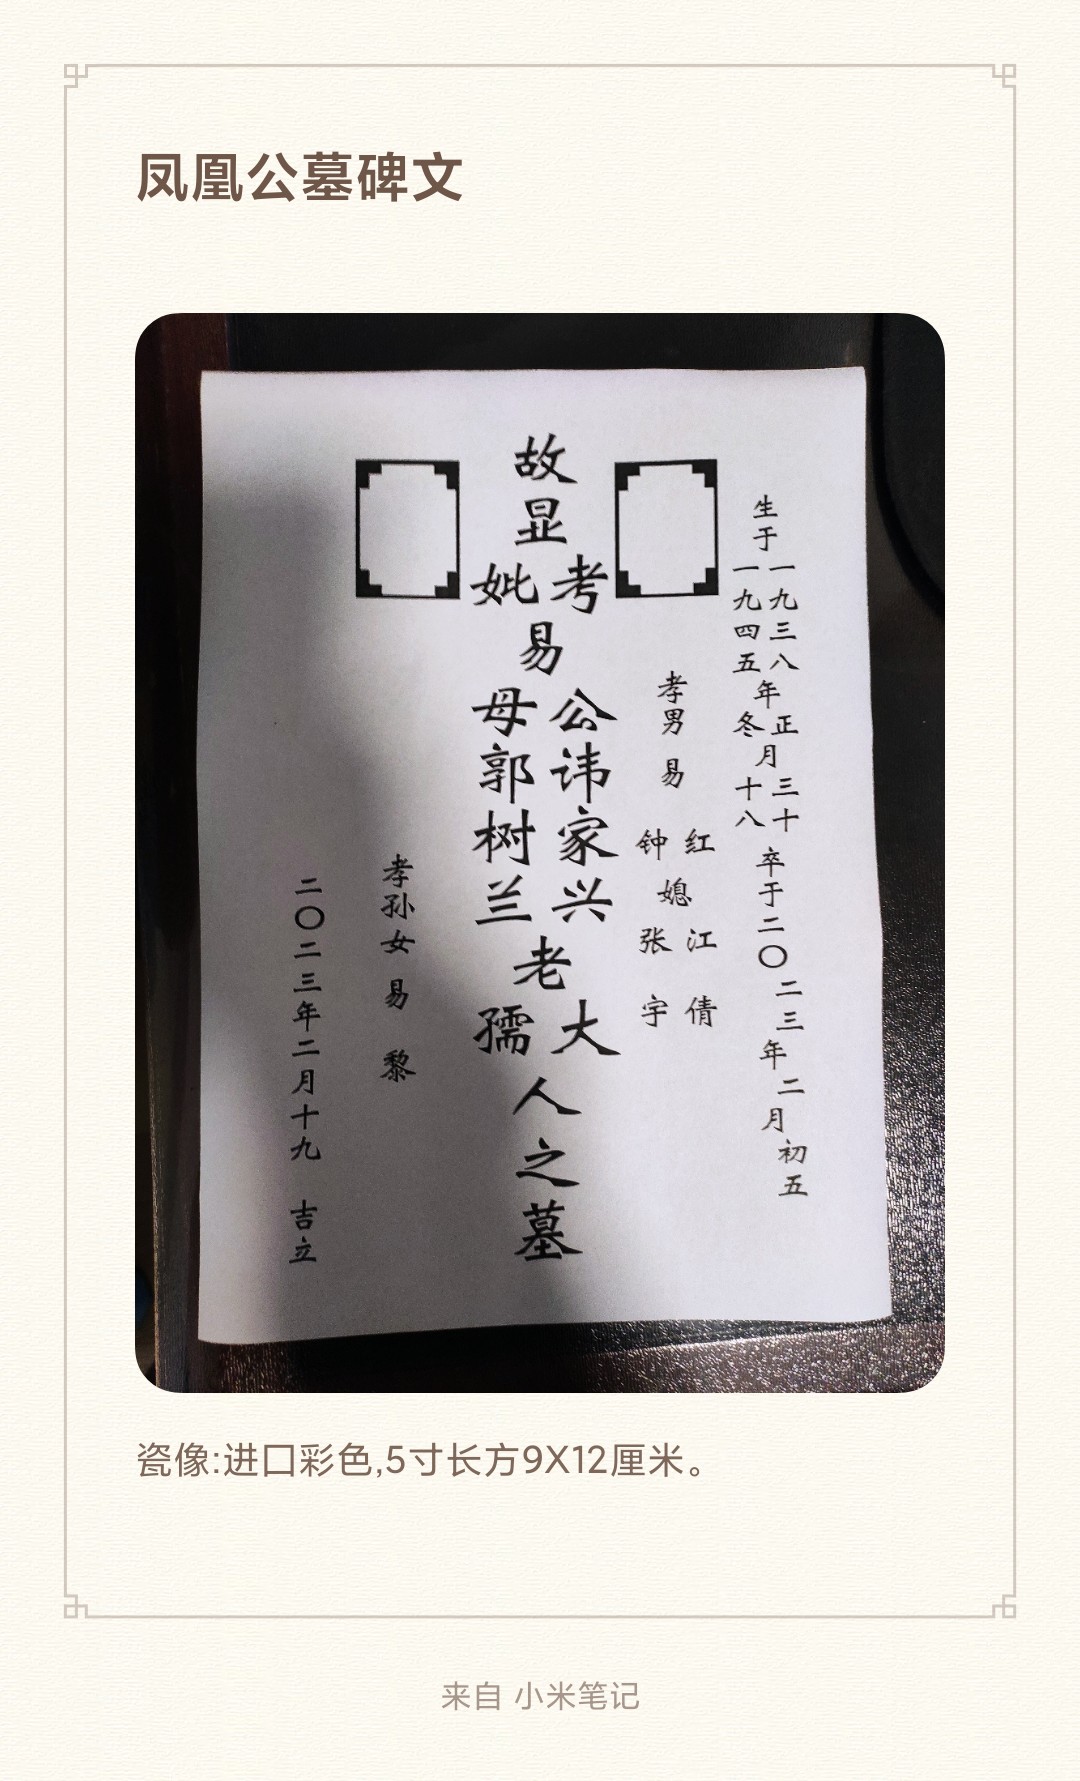 凤凰公墓碑文
生于一九三八年正月三十
一九四五 冬 十八
卒于二〇二三年二月初五
孝男 易 红 江 倩
钟 媳 张 宇
故显考 易公讳家兴老大人之墓
妣 母郭树兰 孺
孝孙女 易 黎
二〇二三年二月十九 吉立
瓷像:进口彩色,5寸长方9X12厘米。
来自 小米笔记